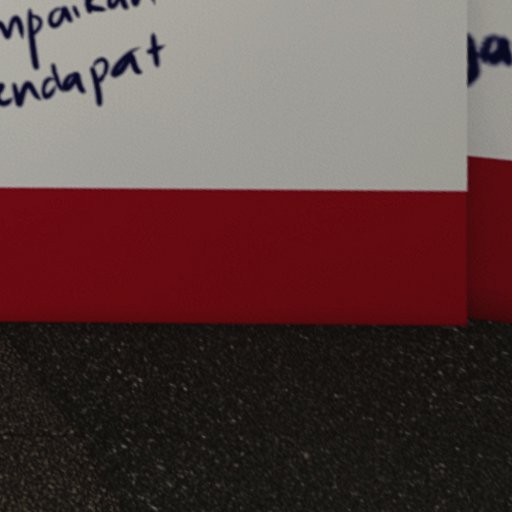 mpaikan
endapat
ga